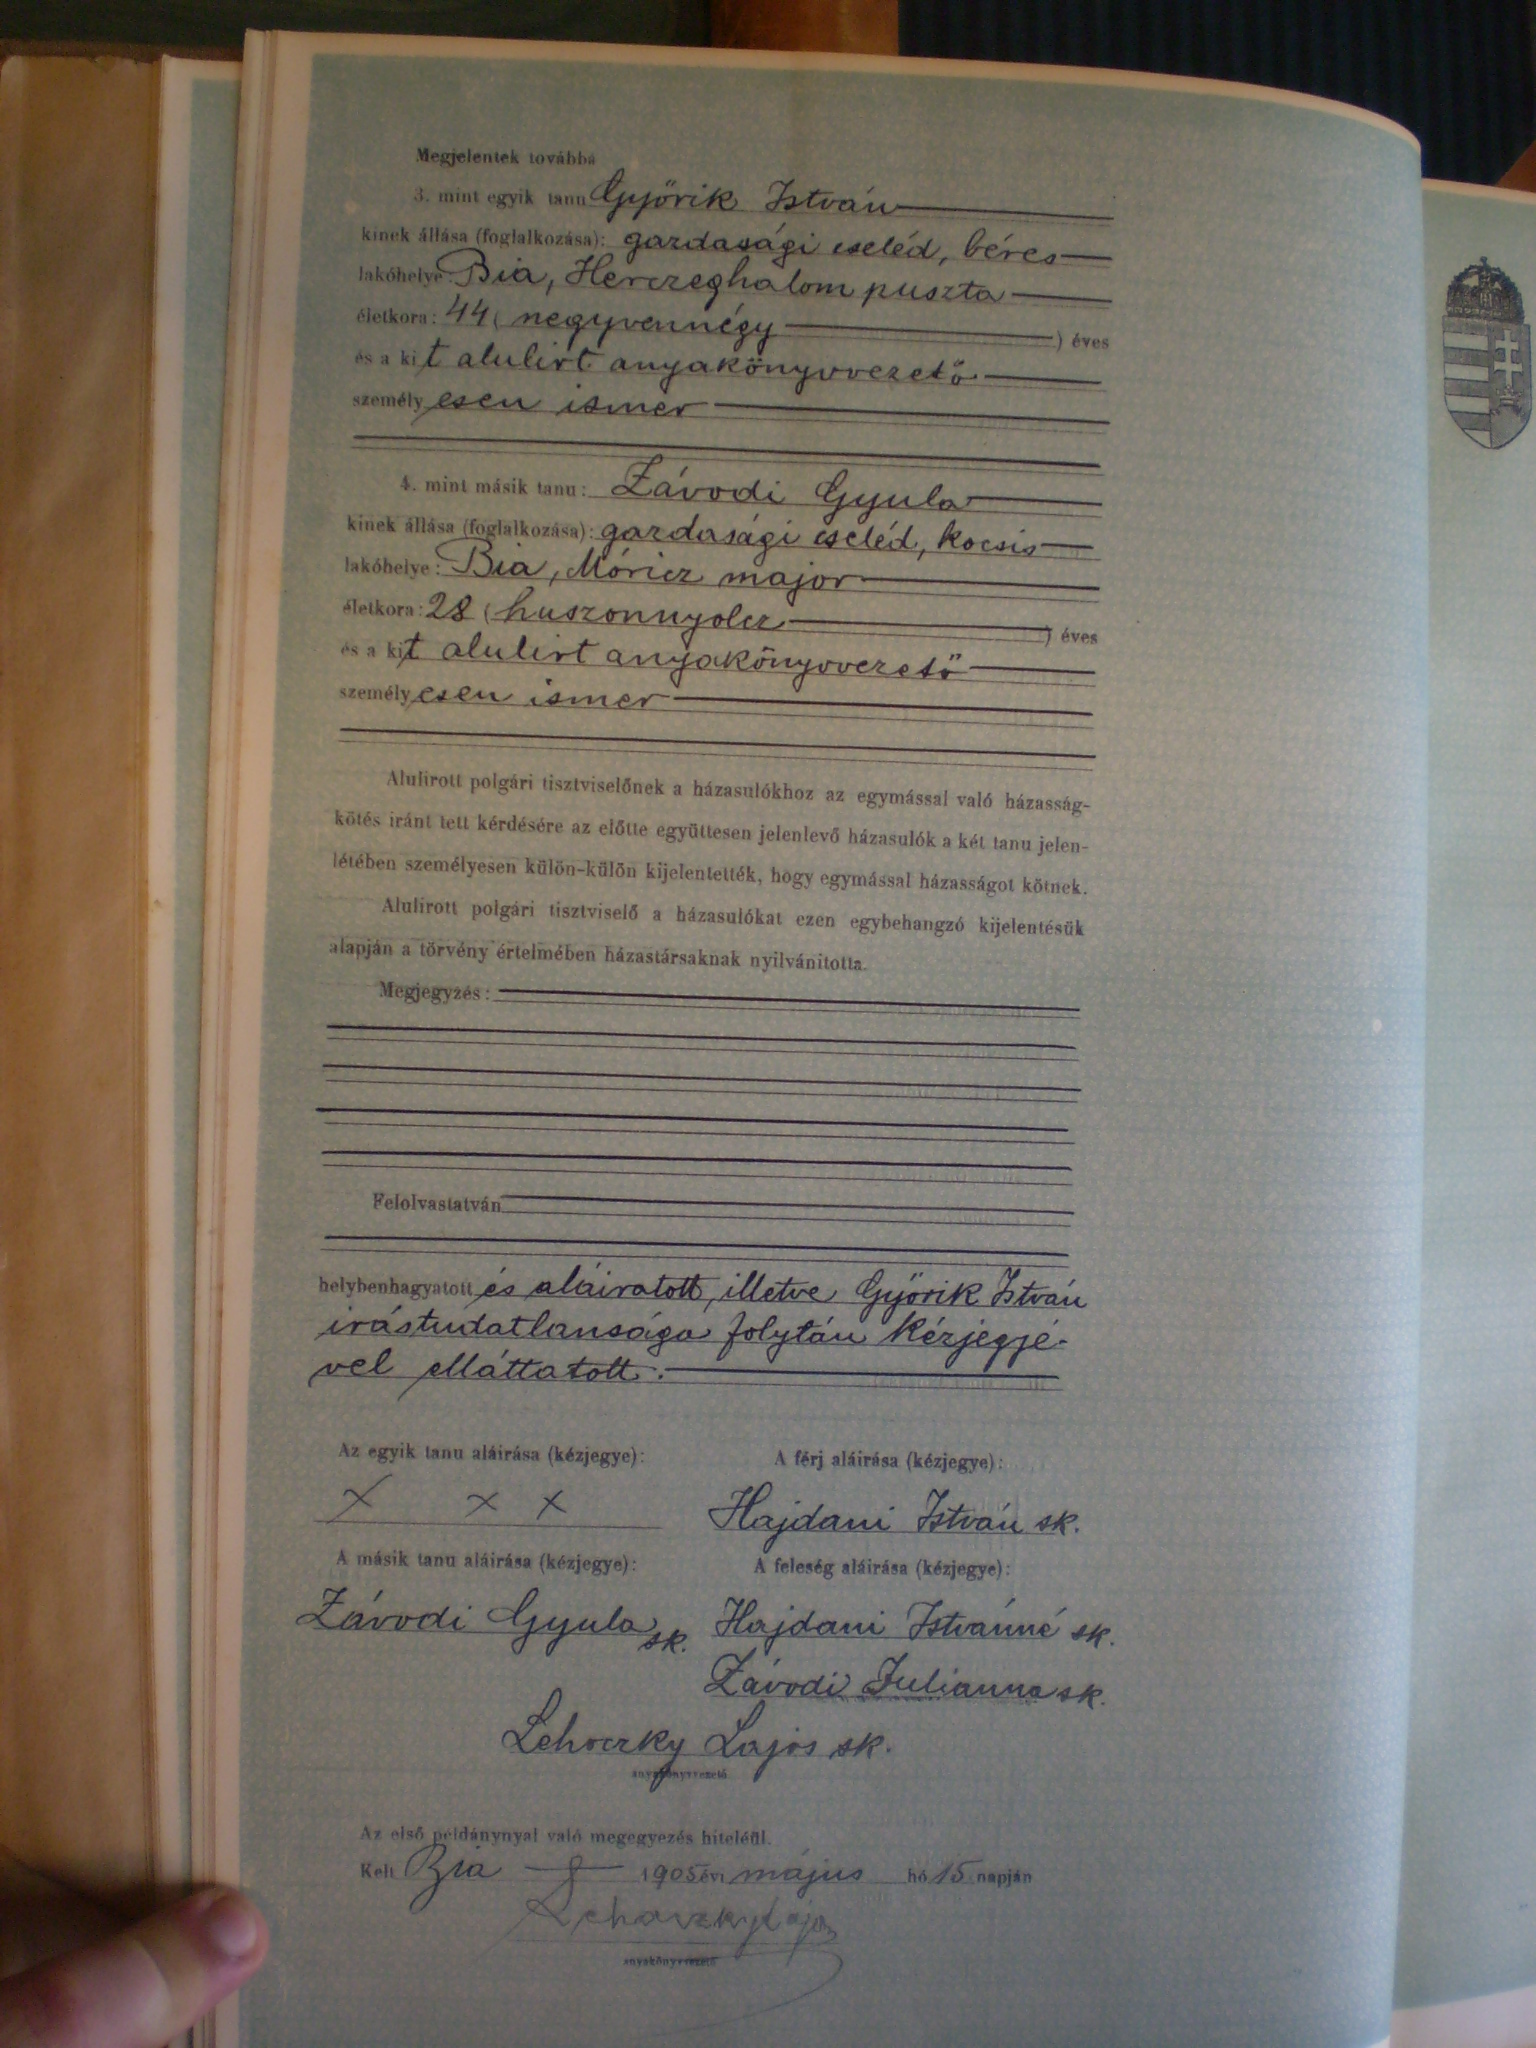 Megjelentek továbbá
3. mint egyik tanu Győrik István
kinek állása (foglalkozása): gazdasági cseléd, béres
lakóhelye: Bia, Herczeghalom puszta
életkora: 44 ( negyvennégy ) éves
és a kit alulirt anyakönyvvezető
személyesen ismer
4. mint másik tanu: Závodi Gyula
kinek állása (foglalkozása): gazdasági cseléd, kocsis
lakóhelye: Bia, Móricz major
életkora: 28 ( huszonnyolcz ) éves
és a kit alulirt anyakönyvvezető
személyesen ismer
Alulirott polgári tisztviselőnek a házasulókhoz az egymással való házasság-
kötés iránt tett kérdésére az előtte együttesen jelenlevő házasulók a két tanu jelen-
létében személyesen külön-külön kijelentették, hogy egymással házasságot kötnek.
Alulirott polgári tisztviselő a házasulókat ezen egybehangzó kijelentésük
alapján a törvény értelmében házastársaknak nyilvánitotta.
Megjegyzés:
Felolvastatván
helybenhagyatott és aláiratott, illetve Győrik István
irástudatlansága folytán kézjegyé-
vel elláttatott.
Az egyik tanu aláirása (kézjegye): A férj aláirása (kézjegye):
x x x Hajdani István sk.
A másik tanu aláirása (kézjegye): A feleség aláirása (kézjegye):
Závodi Gyula sk. Hajdani Istvánné sk.
Závodi Julianna sk.
Lehoczky Lajos sk.
anyakönyvvezető
Az első példánynyal való megegyezés hiteléül.
Kelt Bia 1905 évi május hó 15 napján
Lehoczky Lajos
anyakönyvvezető